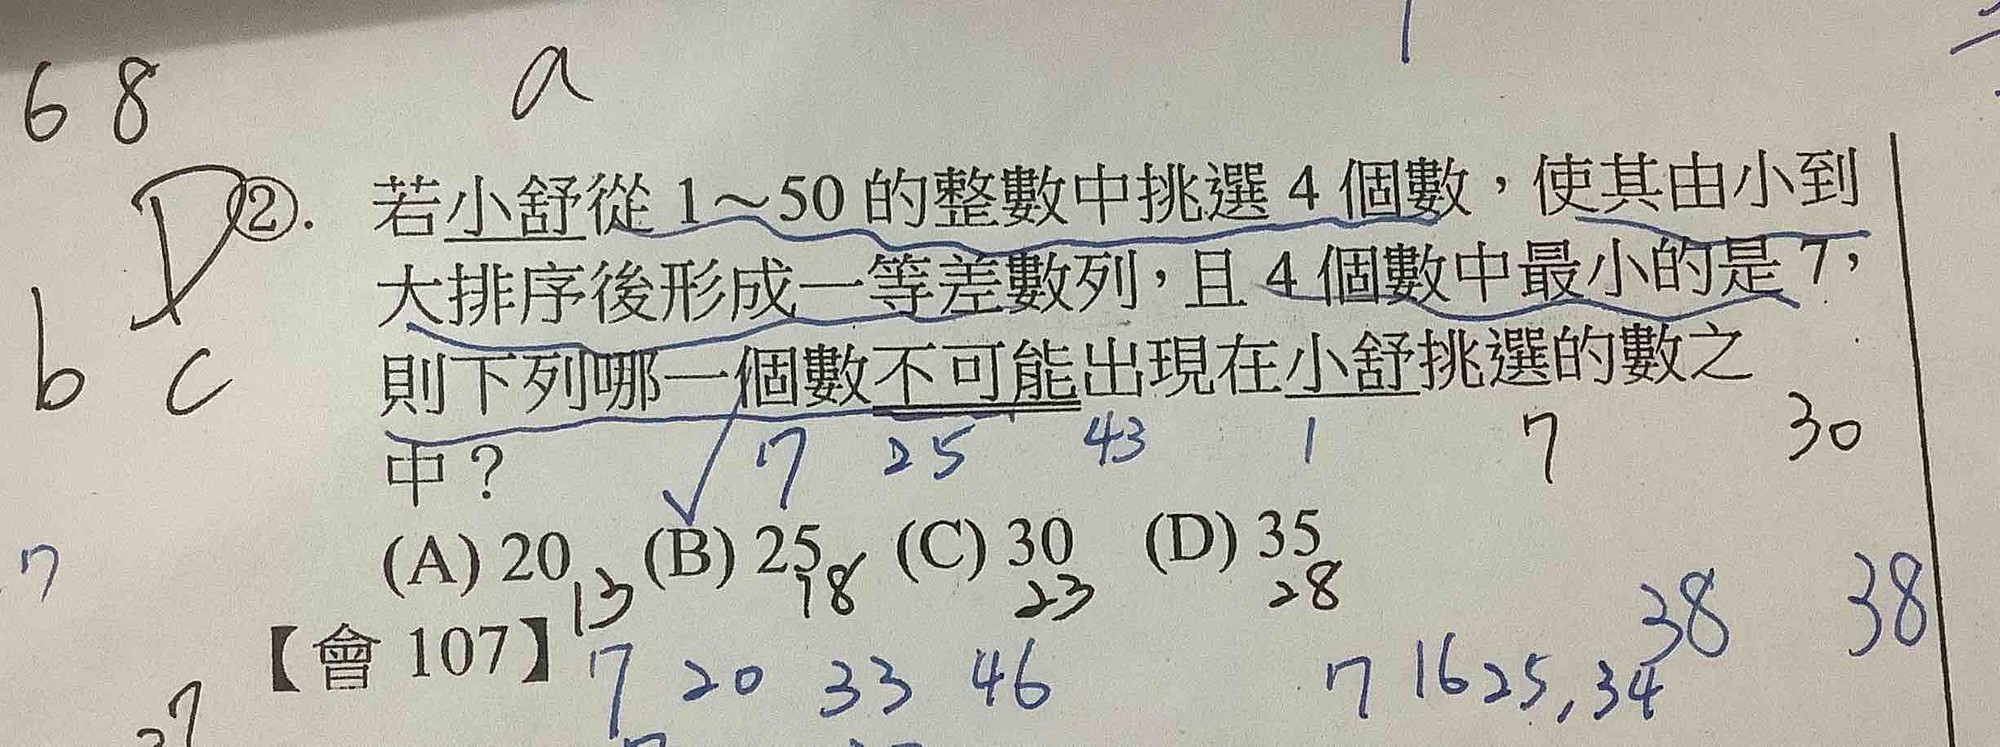 68
a
D
②. 若小舒從 1～50 的整數中挑選 4 個數，使其由小到
大排序後形成一等差數列，且 4 個數中最小的是 7，
b c
則下列哪一個數不可能出現在小舒挑選的數之
中？
7 25 43 1 7 30
(A) 20 (B) 25 (C) 30 (D) 35
13 18 23 28
7
38 38
【會 107】
7 20 33 46
7 16 25, 34